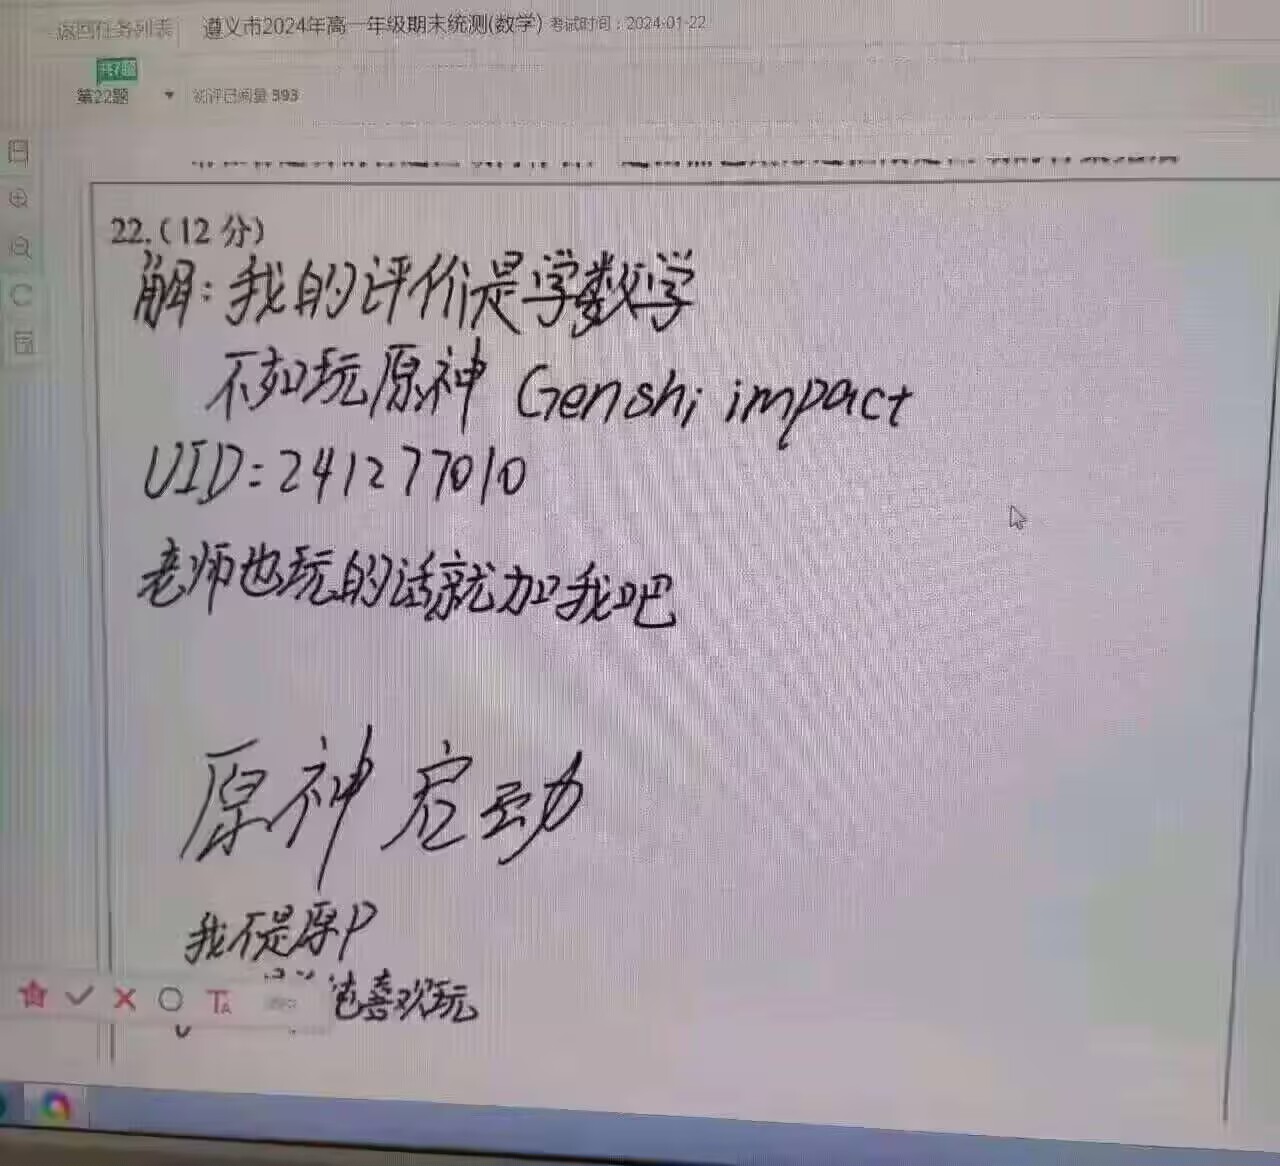 返回任务列表 遵义市2024年高一年级期末统测(数学) 考试时间：2024-01-22
共7题
第22题 393
22.(12分)
解:我的评价是学数学
不如玩原神 Genshi impact
UID:241277010
老师也玩的话就加我吧
原神启动
我不是原P
也喜欢玩